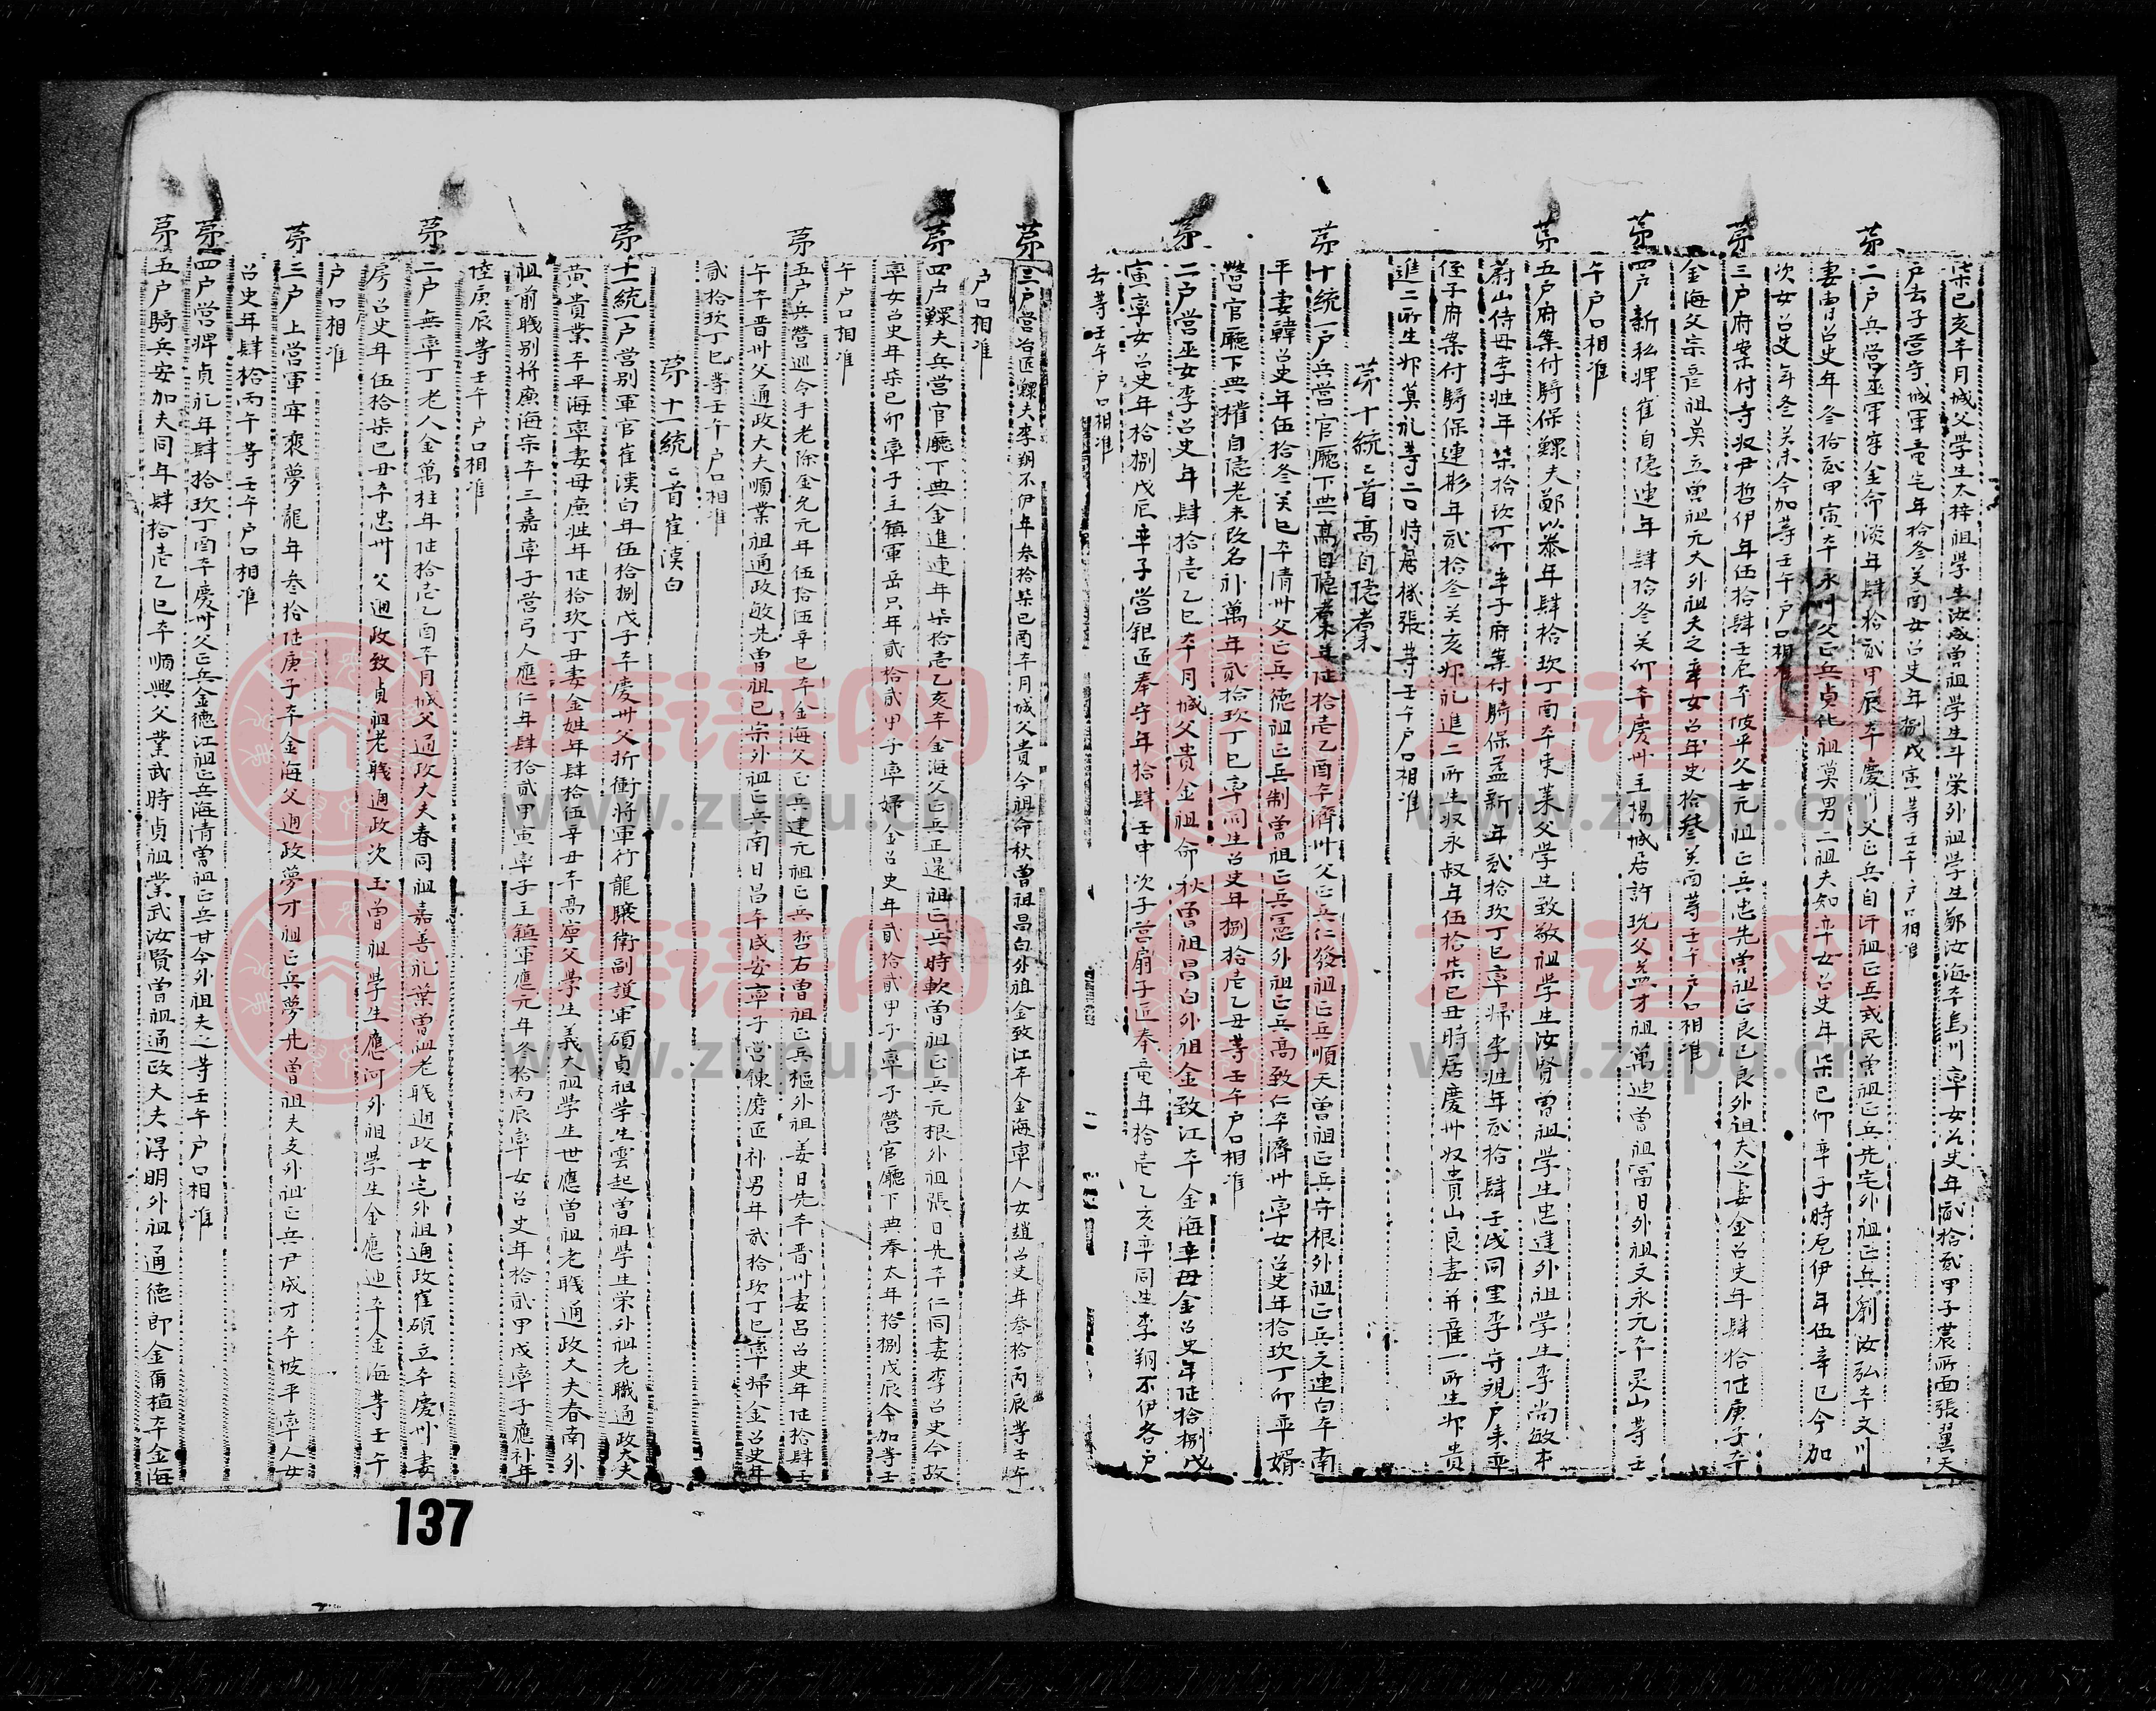 柒己亥本月城父學生太梓祖學生汝成曾祖學生斗榮外祖學生鄭汝海本烏川率女召史年貳拾貳甲子
戶去子營守城軍童
年拾參
女召史年捌戊寅等壬午戶口相准
第二戶兵營
軍牢金命淡年肆拾貳甲辰本慶州父正兵自汗祖正兵武民曾祖正兵先宅外祖正兵劉汝弘本文川
妻曺召史年參拾貳甲寅本永川父正兵貞化祖莫男
年柒己卯率子時
伊年伍辛巳今加
次女召史年
今加等壬午戶口相准
第三戶府案付寺奴尹哲伊年伍拾肆
本坡平父士元祖正兵忠先曾祖正良已良外祖夫之妻金召史年肆拾陸庚子本
金海父宗
第四戶新私婢崔自隱連年肆拾
卯本慶州主揚城居許
曾祖富日外祖文永元本灵山等壬
午戶口相准
第五戶府案付騎保鰥夫鄭以泰年肆拾玖丁酉本東萊父學生致敬祖學生汝賢曾祖學生忠達外祖學生李尚敏本
蔚山侍母李姓年柒拾玖丁卯率子府案付騎保孟新年貳拾玖丁巳率婦李姓年貳拾肆
同里李守
戶來率
侄子府案付騎保連彬年貳拾
亥婢礼進二所生奴永叔年伍拾柒己丑時居慶州奴貴山良妻并産一所生婢貴
進二所生婢莫礼等二口時居機張等壬午戶口相准
第十統統首高自隱
第十統一戶兵營官廳下典高自隱
年陸拾壱乙酉本濟州父正兵仁發祖正兵順天曾祖正兵守根外祖正兵文連白本南
平妻韓召史年伍拾
本清州父正兵德祖正兵制曾祖正兵憲外祖正兵高致仁本濟州率女召史年拾玖丁卯率婿
營官廳下典權自隱老未改名補萬年貳拾玖丁巳率同生召史年捌拾壱乙丑等壬午戶口相准
第二戶營巫女李召史年肆拾壱乙巳本月城父貴金祖命秋曾祖昌白外祖金致江本金海率母金召史年陸拾捌戊
寅率女召史年拾捌戊辰率子營鉏匠奉守年拾肆壬申次子營扇子匠奉童年拾壱乙亥率同生李翔不伊各戶
去等壬午戶口相准
第三戶營冶匠鰥夫李翔不伊年參拾柒己酉本月城父貴今祖命秋曾祖昌白外祖金致江本金海率人女趙召史年參拾丙辰等壬午
戶口相准
第四戶鰥夫兵營官廳下典金進連年柒拾壱乙亥本金海父正兵正還祖正兵時軟曾祖正兵元根外祖張日先本仁同妻李召史今故
率女召史年柒己卯率子主鎮軍岳只年貳拾貳甲子率婦金召史年貳拾貳甲子率子營官廳下典奉太年拾捌戊辰今加等壬
午戶口相准
第五戶兵營巡令手老除金允元年伍拾伍辛巳本金海父正兵建元祖正兵哲石曾祖正兵樞外祖姜日先本晋州妻呂召史年陸拾肆壬
午本晋州父通政大夫順業祖通政敏先曾祖已宗外祖正兵南日昌本咸安率子營鍊磨匠補男年貳拾玖丁巳率婦金召史年
貳拾玖丁巳等壬午戶口相准
第十一統統首崔漢白
第十一統一戶營別軍官崔漢白年伍拾捌戊子本慶州父折衝將軍行龍驤衛副護軍碩貞祖學生雲起曾祖學生榮外祖老職通政大夫
黃貴業本平海率妻母廉姓年陸拾玖丁丑妻金姓年肆拾伍辛丑本高寧父學生義大祖學生世應曾祖老職通政大夫春南外
祖前職別將廉海宗本三嘉率子營弓人應仁年肆拾貳甲寅率子主鎮軍應元年
拾丙辰率女召史年拾貳甲戌率子應補年
陸庚辰等壬午戶口相准
第二戶無率丁老人金萬柱年陸拾壱乙酉本月城父通政大夫春同祖嘉善礼業曾祖老職通政士宅外祖通政崔碩立本慶州妻
房召史年伍拾柒己丑本忠州父通政致貞祖老職通政次玉曾祖學生應河外祖學生金應迪本金海等壬午
戶口相准
第三戶上營軍牢裵夢龍年參拾陸庚子本金海父通政夢才祖正兵夢先曾祖夫支外祖正兵尹成才本坡平率人女
召史年肆拾丙午等壬午戶口相准
第四戶營婢貞礼年肆拾玖丁酉本慶州父正兵金德江祖正兵海清曾祖正兵甘今外祖夫之等壬午戶口相准
第五戶騎兵安加夫同年肆拾壱乙巳本順興父業武時貞祖業武汝賢曾祖通政大夫淂明外祖通德郎金爾植本金海
137
族谱网
www.zupu.cn
族谱网
www.zupu.cn
族谱网
www.zupu.cn
族谱网
www.zupu.cn